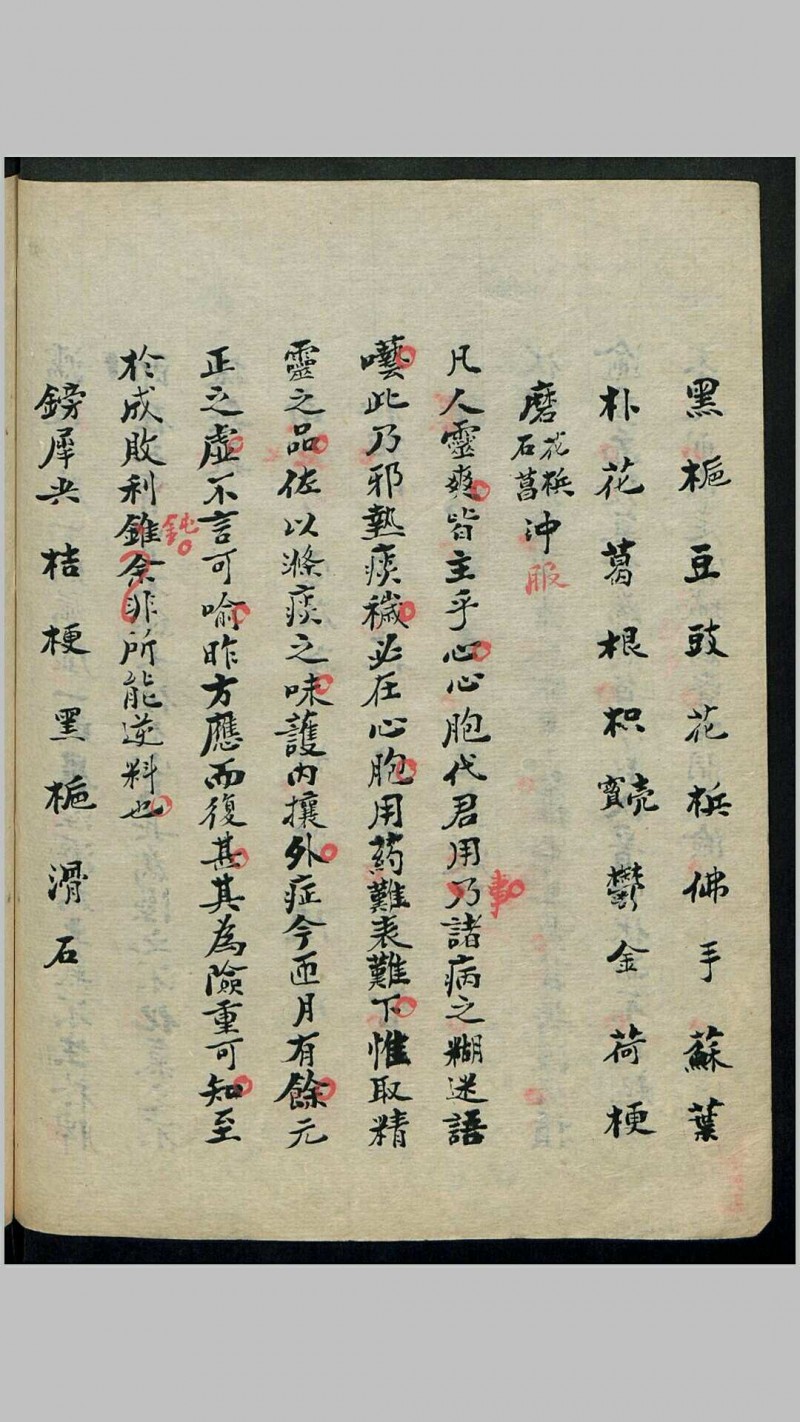 黑梔豆豉花梹佛手蘇葉
朴花葛根枳實壳鬱金荷梗
磨花梹石菖沖服
凡人靈爽皆主乎心心胞代君用事乃諸病之糊迷語
囈此乃邪熱痰穢必在心胞用药難表難下惟取精
靈之品佐以滌痰之味護內攘外症今匝月有餘元
正之虛不言可喻昨方應而復甚其為險重可知至
於成敗利鈍錐余非所能逆料也
鎊犀尖桔梗黑梔滑石